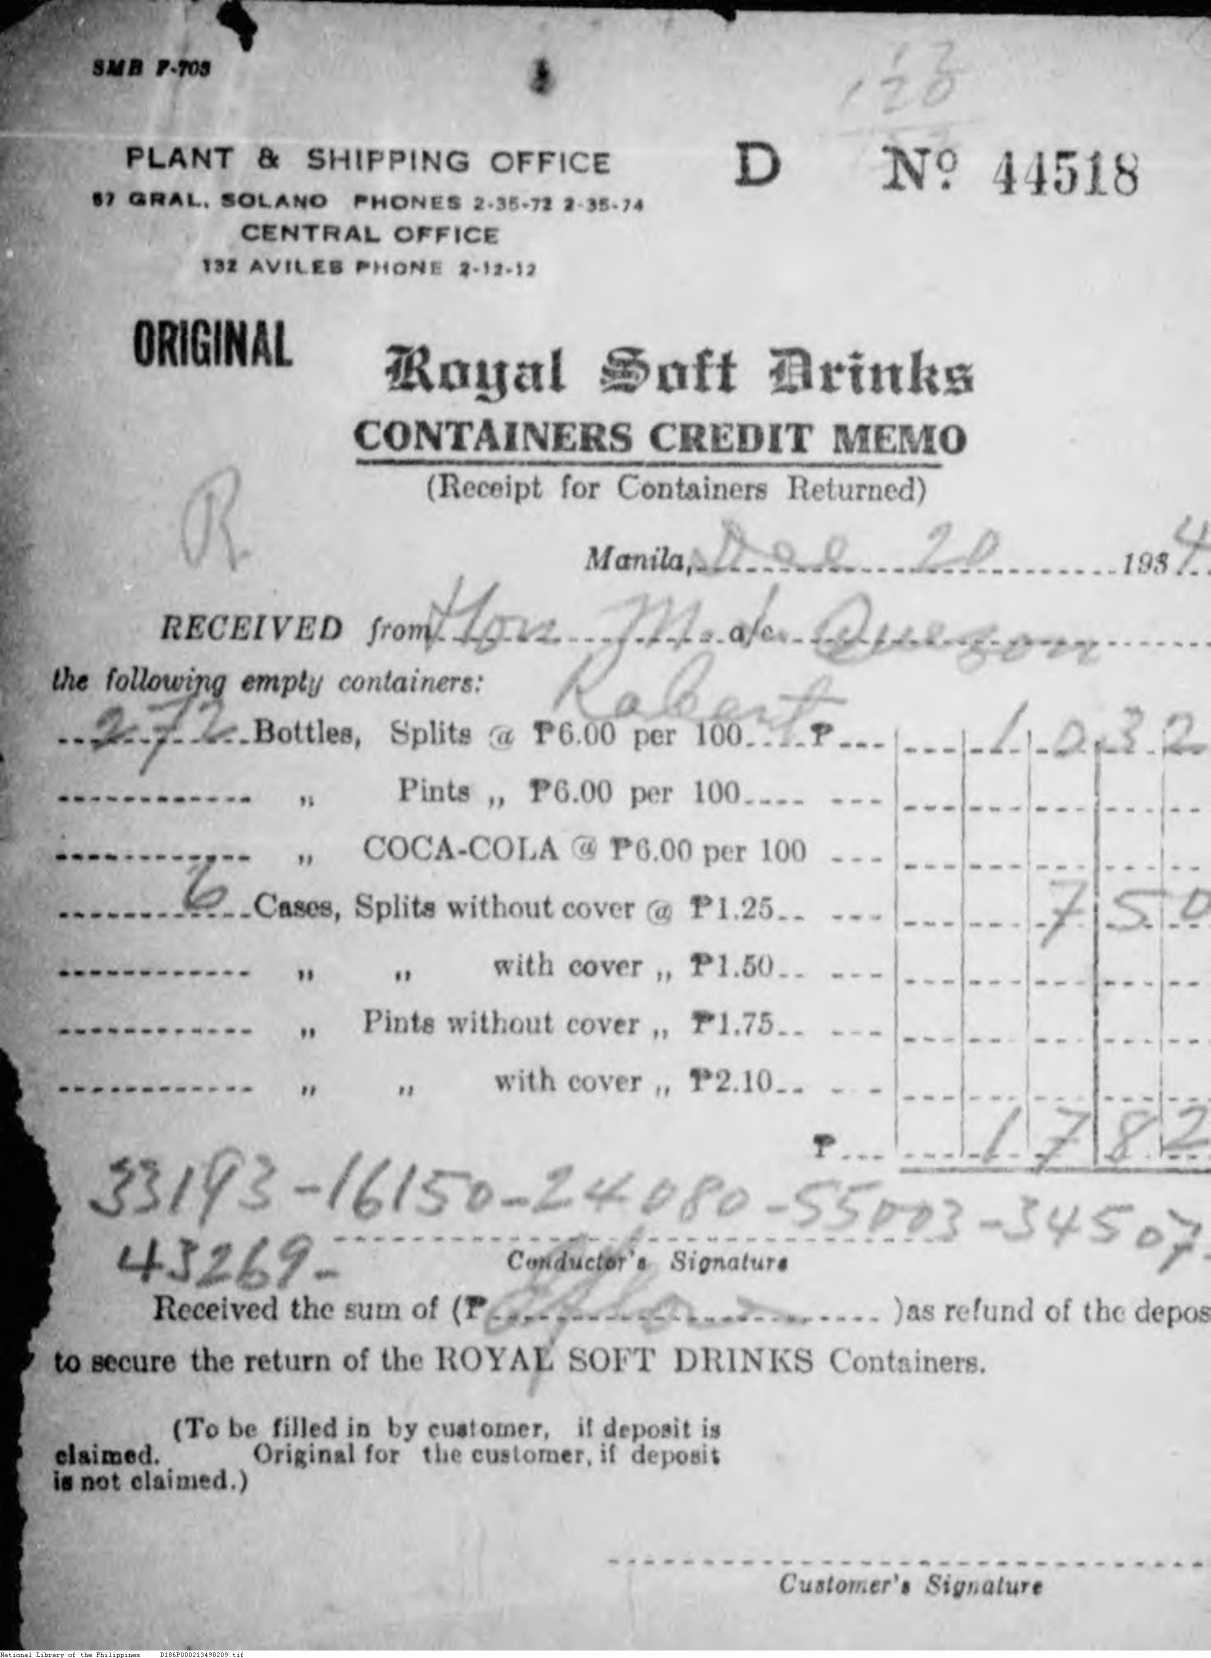 SMB F-703
120
PLANT & SHIPPING OFFICE
D Nº 44518
67 GRAL. SOLANO PHONES 2-35-72 2-35-74
CENTRAL OFFICE
132 AVILES PHONE 2-12-12
ORIGINAL
Royal Soft Drinks
CONTAINERS CREDIT MEMO
(Receipt for Containers Returned)
R
Manila, Dec 20 1934
RECEIVED from Hon M. L. a/c Quezon
the following empty containers: Robert
272 Bottles, Splits @ ₱6.00 per 100 ₱ 10 32
„ Pints „ ₱6.00 per 100
„ COCA-COLA @ ₱6.00 per 100
6 Cases, Splits without cover @ ₱1.25 7 50
„ „ with cover „ ₱1.50
„ Pints without cover „ ₱1.75
„ „ with cover „ ₱2.10
₱ 17 82
33193-16150-24080-55003-34507-
43269-
Conductor's Signature
Received the sum of (₱ )as refund of the depos
to secure the return of the ROYAL SOFT DRINKS Containers.
(To be filled in by customer, if deposit is
claimed. Original for the customer, if deposit
is not claimed.)
Customer's Signature
National Library of the Philippines D186P000213490209.tif